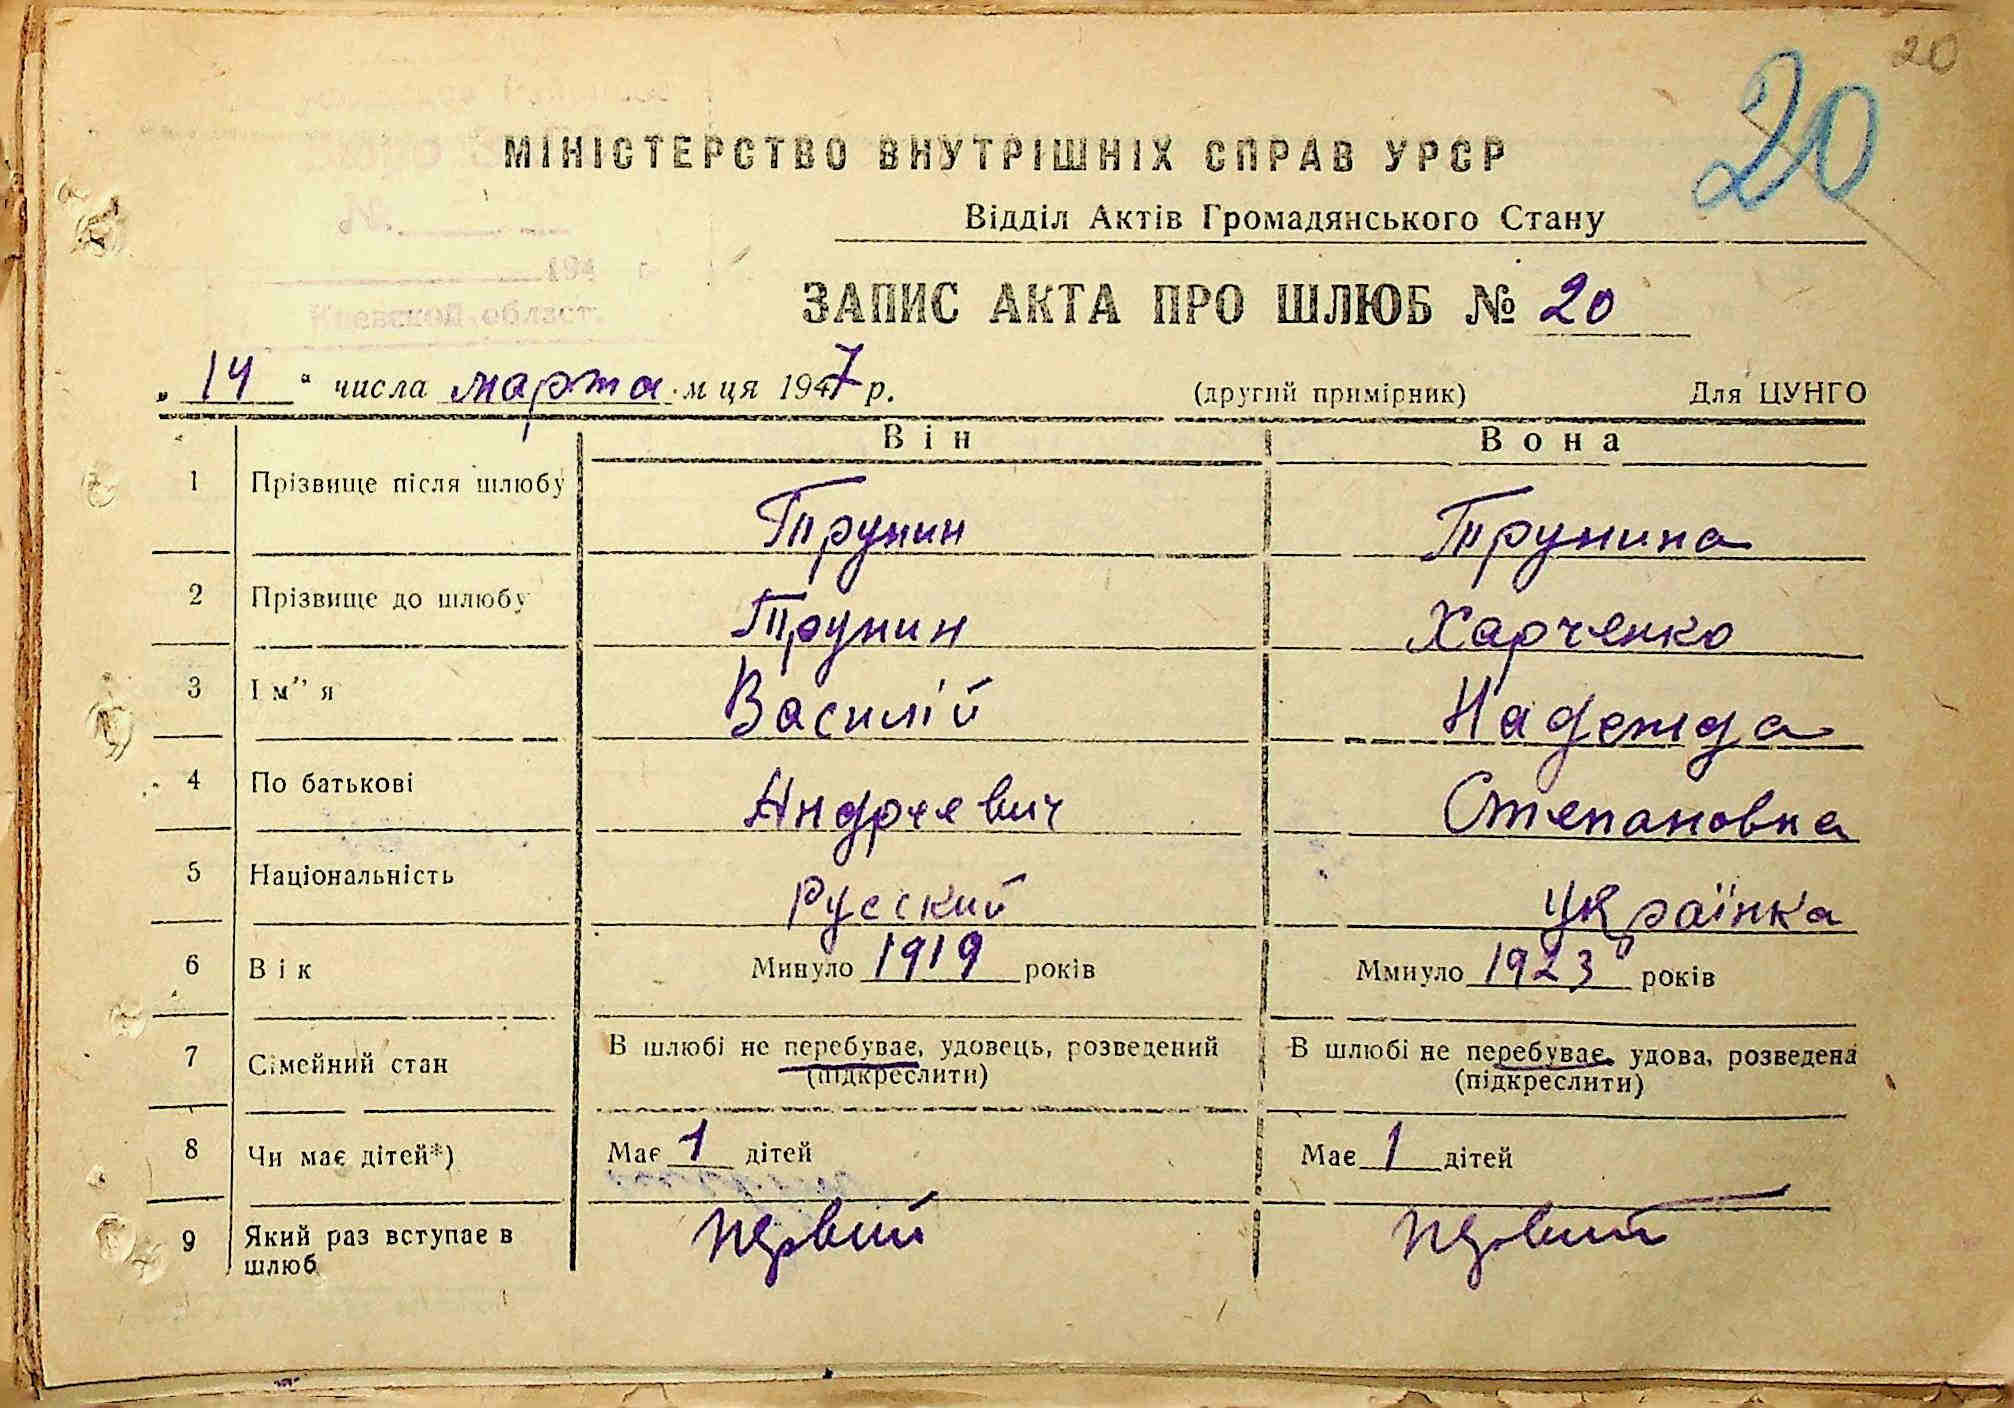 20
20
МІНІСТЕРСТВО ВНУТРІШНІХ СПРАВ УРСР
Відділ Актів Громадянського Стану
ЗАПИС АКТА ПРО ШЛЮБ № 20
„ 14 " числа марта м ця 1947 р. (другий примірник) Для ЦУНГО
Він Вона
1 Прізвище після шлюбу Трунин Трунина
2 Прізвище до шлюбу Трунин Харченко
3 Ім"я Василій Надежда
4 По батькові Андреевич Степановна
5 Національність Русский Українка
6 Вік Минуло 1919 років Ммнуло 1923 років
7 Сімейний стан В шлюбі не перебуває, удовець, розведений В шлюбі не перебуває, удова, розведена
(підкреслити) (підкреслити)
8 Чи має дітей*) Має 1 дітей Має 1 дітей
9 Який раз вступає в шлюб первий первий